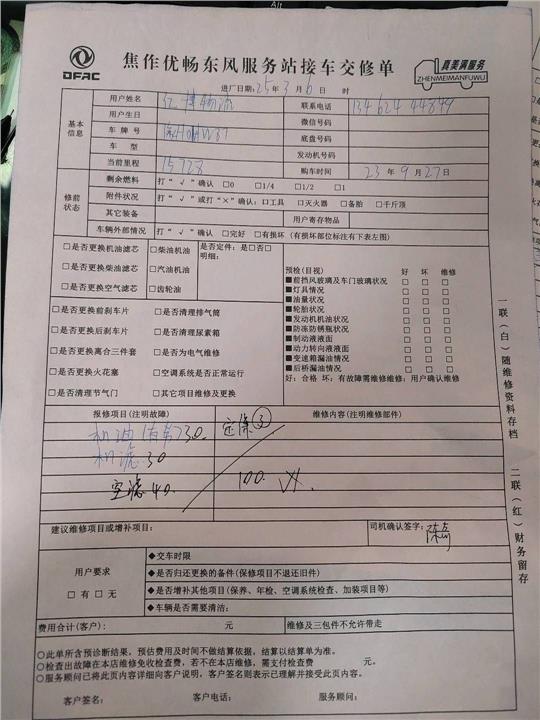 DFAC
焦作优畅东风服务站接车交修单
真美满服务
ZHENMEIMANFUWU
进厂日期:25年3月6日 时
基本信息
用户姓名 亿博物流 联系电话 134 624 44849
用户生日 微信号码
车牌号 底盘号码
车 型 发动机号码
当前里程 15728 购车时间 23年9月27日
修前状态
剩余燃料 打“√”确认 □0 □1/4 □1/2 □1
附件状况 打“√”或打“×”确认:□工具 □灭火器 □备胎 □千斤顶
其它装备 用户寄存物品
车辆外部情况 打“√”确认 □完好 □有损坏(有损坏部位标注有下表左图)
□是否更换机油滤芯 □柴油机油 是否定件:是□否□
明细:
□是否更换柴油滤芯 □汽油机油
□是否更换空气滤芯 □齿轮油
□是否更换前刹车片 □是否清理排气筒
□是否更换后刹车片 □是否清理尿素箱
□是否更换离合三件套 □是否为电气维修
□是否更换火花塞 □空调系统是否正常运行
□是否清理节气门 □其它项目维修及更换
预检(目视) 好 坏 维修
■前挡风玻璃及车门玻璃状况 □ □ □
■灯具情况 □ □ □
■油量状况 □ □ □
■轮胎状况 □ □ □
■发动机机油状况 □ □ □
■防冻防锈瓶状况 □ □ □
■制动液液面 □ □ □
■动力转向液液面 □ □ □
■变速箱漏油情况 □ □ □
■后桥漏油情况 □ □ □
好:合格 坏:有故障需维修维修:用户确认维修
报修项目(注明故障) 维修内容(注明维修部件)
机油 30. 定保③
机滤 30
空滤 40. 100.
建议维修项目或增补项目: 司机确认签字:
用户要求
□有 □无
◆交车时限
◆是否归还更换的备件(保修项目不退还旧件)
◆是否增补其他项目(保养、年检、空调系统检查、加装项目等)
◆车辆是否需要清洁:
费用合计(客户): 元 维修及三包件不允许带走
○此单所含预诊断结果,预估费用及时间不做结算依据,结算以结算单为准。
○检查出故障在本店维修免收检查费,若不在本店维修,需支付检查费 元。
○服务顾问已将此页内容详细向客户说明,客户签名则表示已理解并接受此页内容。
客户签名: 客户电话: 服务顾问:
一联(白)随维修资料存档
二联(红)财务留存